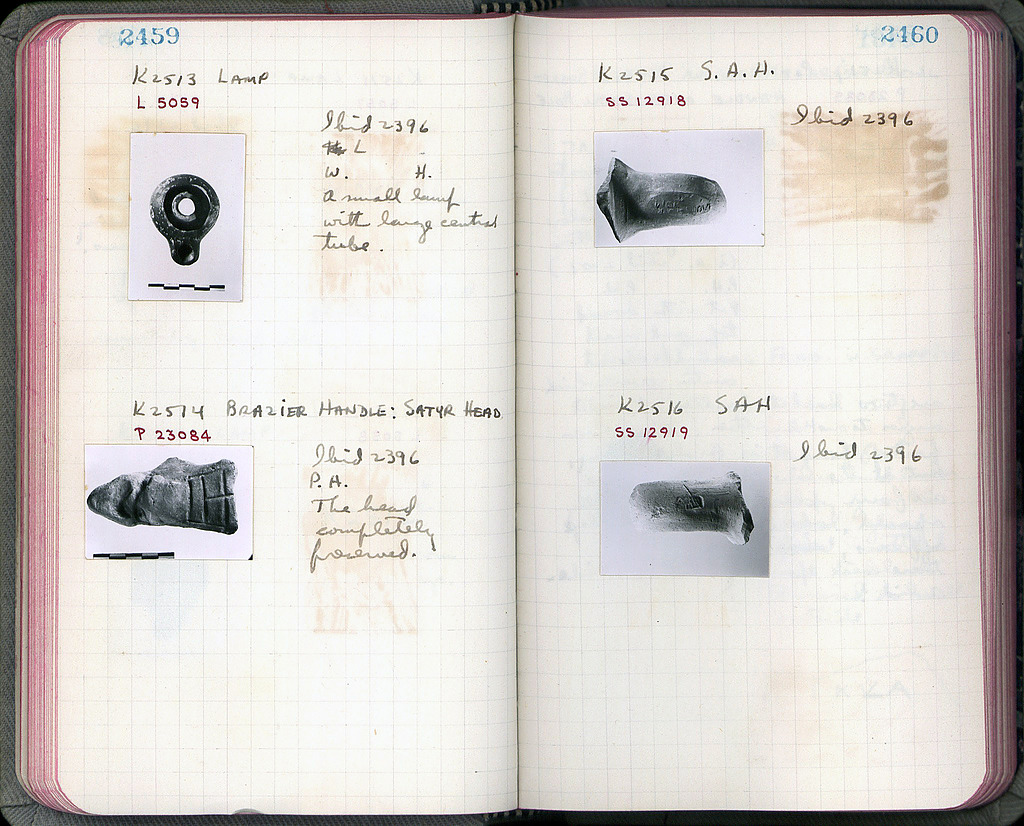 2459
K2513 LAMP
L 5059
Ibid 2396
L
W. H.
A small lamp
with large central
tube.
K2514 BRAZIER HANDLE: SATYR HEAD
P 23084
Ibid 2396
P.A.
The head
completely
preserved.
2460
K2515 S.A.H.
SS 12918
Ibid 2396
K2516 SAH
SS 12919
Ibid 2396